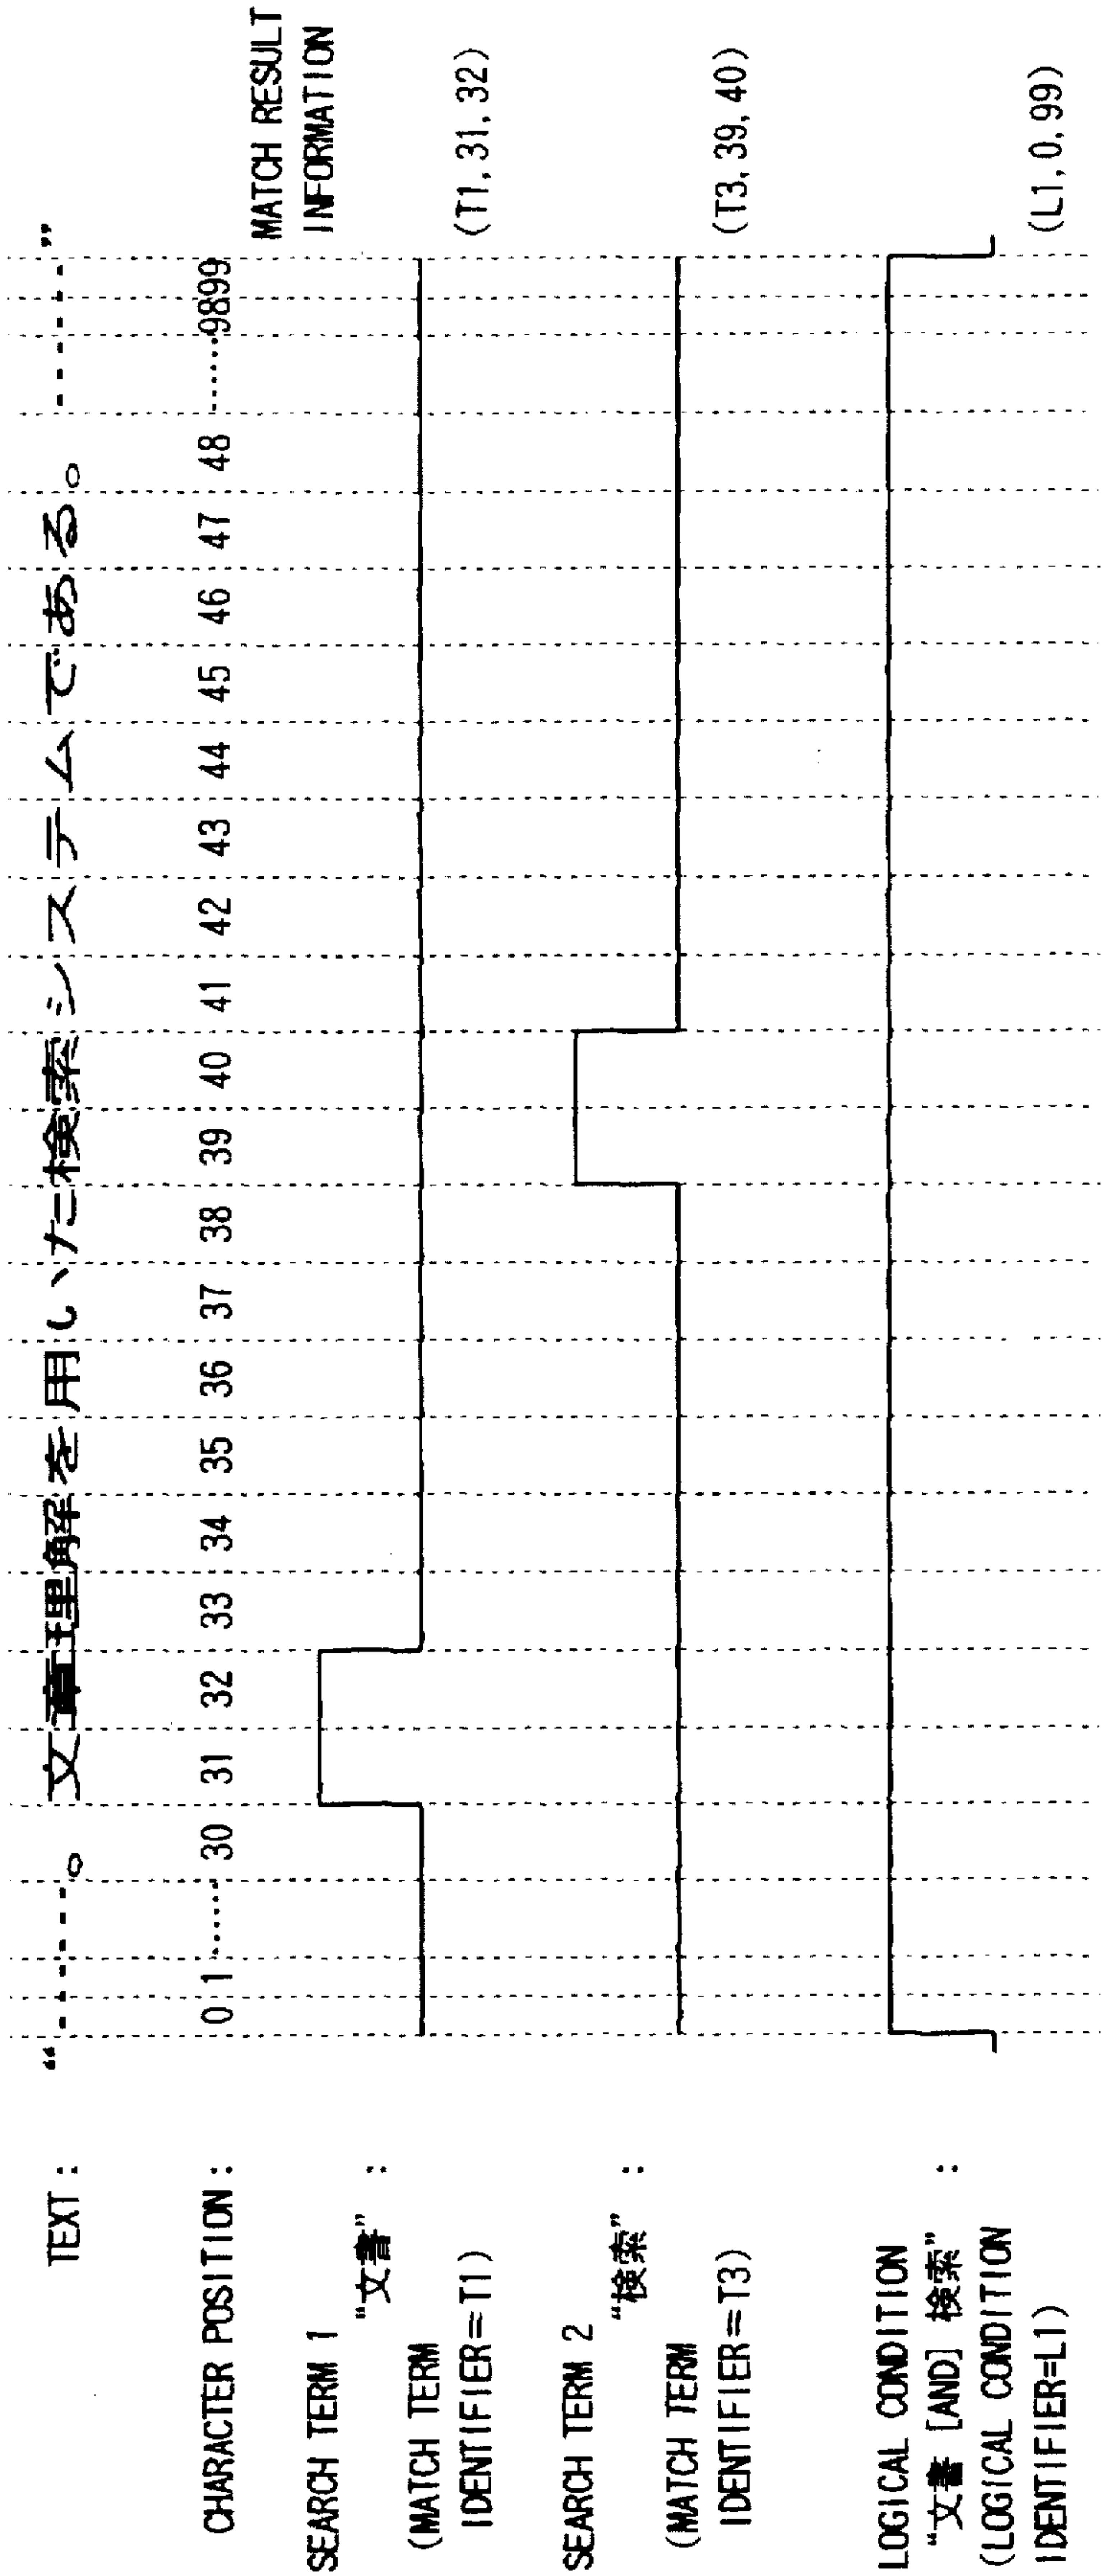 TEXT : “------。文章理解を用いた検索システムである。------”
CHARACTER POSITION : 0 1 ...... 30 31 32 33 34 35 36 37 38 39 40 41 42 43 44 45 46 47 48 ......9899
MATCH RESULT
INFORMATION
SEARCH TERM 1
“文書” :
(MATCH TERM
IDENTIFIER=T1)
(T1, 31, 32)
SEARCH TERM 2
“検索” :
(MATCH TERM
IDENTIFIER=T3)
(T3, 39, 40)
LOGICAL CONDITION
“文書 [AND] 検索” :
(LOGICAL CONDITION
IDENTIFIER=L1)
(L1, 0, 99)